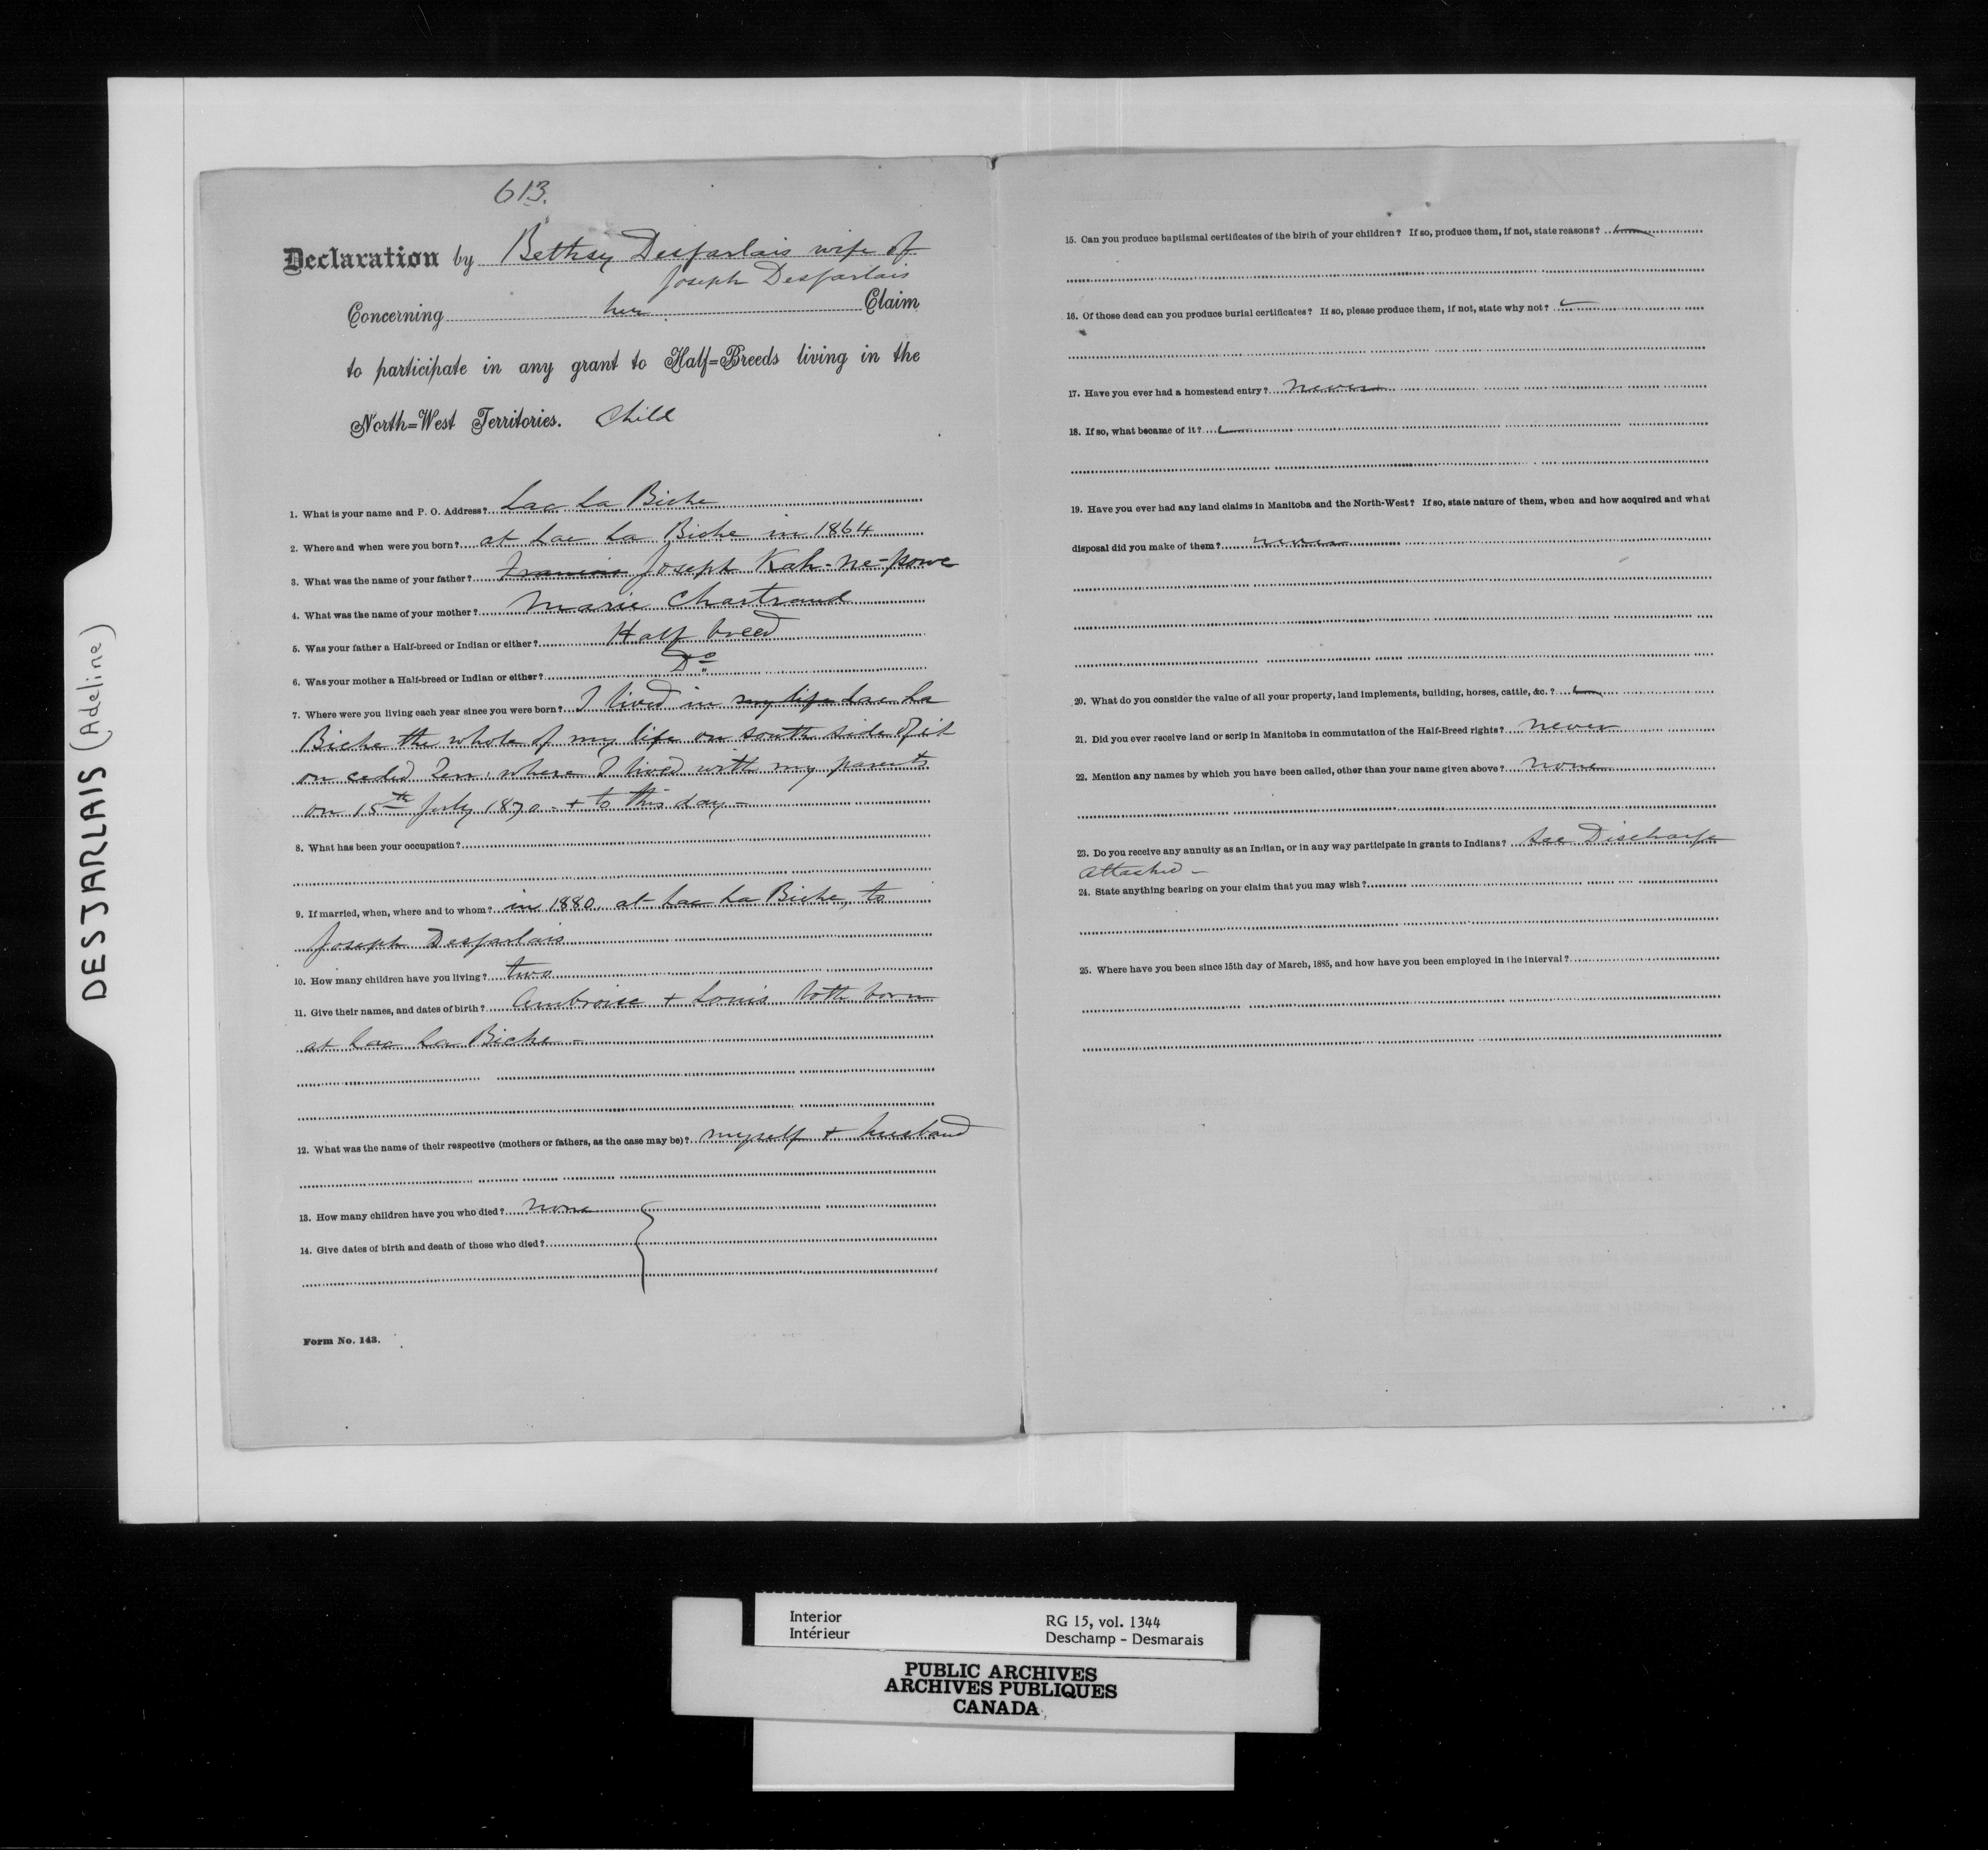 DESJARLAIS (Adeline)
613.
Declaration by Bethsy Desjarlais wife of
Joseph Desjarlais
Concerning her Claim
to participate in any grant to Half=Breeds living in the
North=West Territories. Child
1. What is your name and P. O. Address? Lac La Biche
2. Where and when were you born? at Lac La Biche in 1864
3. What was the name of your father? Francois Joseph Kah-ne-powe
4. What was the name of your mother? Marie Chartrand
5. Was your father a Half-breed or Indian or either? Half breed
6. Was your mother a Half-breed or Indian or either? Do
7. Where were you living each year since you were born? I lived in my life Lac La
Biche the whole of my life on south side of it
on ceded Terr: where I lived with my parents
on 15th July 1870 - + to this day -
8. What has been your occupation?
9. If married, when, where and to whom? in 1880 at Lac La Biche, to
Joseph Desjarlais
10. How many children have you living? two
11. Give their names, and dates of birth? Ambroise + Louis both born
at Lac La Biche -
12. What was the name of their respective (mothers or fathers, as the case may be)? myself + husband
13. How many children have you who died? none
14. Give dates of birth and death of those who died?
Form No. 143.
15. Can you produce baptismal certificates of the birth of your children? If so, produce them, if not, state reasons?
16. Of those dead can you produce burial certificates? If so, please produce them, if not, state why not?
17. Have you ever had a homestead entry? never
18. If so, what became of it?
19. Have you ever had any land claims in Manitoba and the North-West? If so, state nature of them, when and how acquired and what
disposal did you make of them? never
20. What do you consider the value of all your property, land implements, building, horses, cattle, &c.?
21. Did you ever receive land or scrip in Manitoba in commutation of the Half-Breed rights? never
22. Mention any names by which you have been called, other than your name given above? none
23. Do you receive any annuity as an Indian, or in any way participate in grants to Indians? See Discharge
attached -
24. State anything bearing on your claim that you may wish?
25. Where have you been since 15th day of March, 1885, and how have you been employed in the interval?
Interior
Intérieur
RG 15, vol. 1344
Deschamp - Desmarais
PUBLIC ARCHIVES
ARCHIVES PUBLIQUES
CANADA